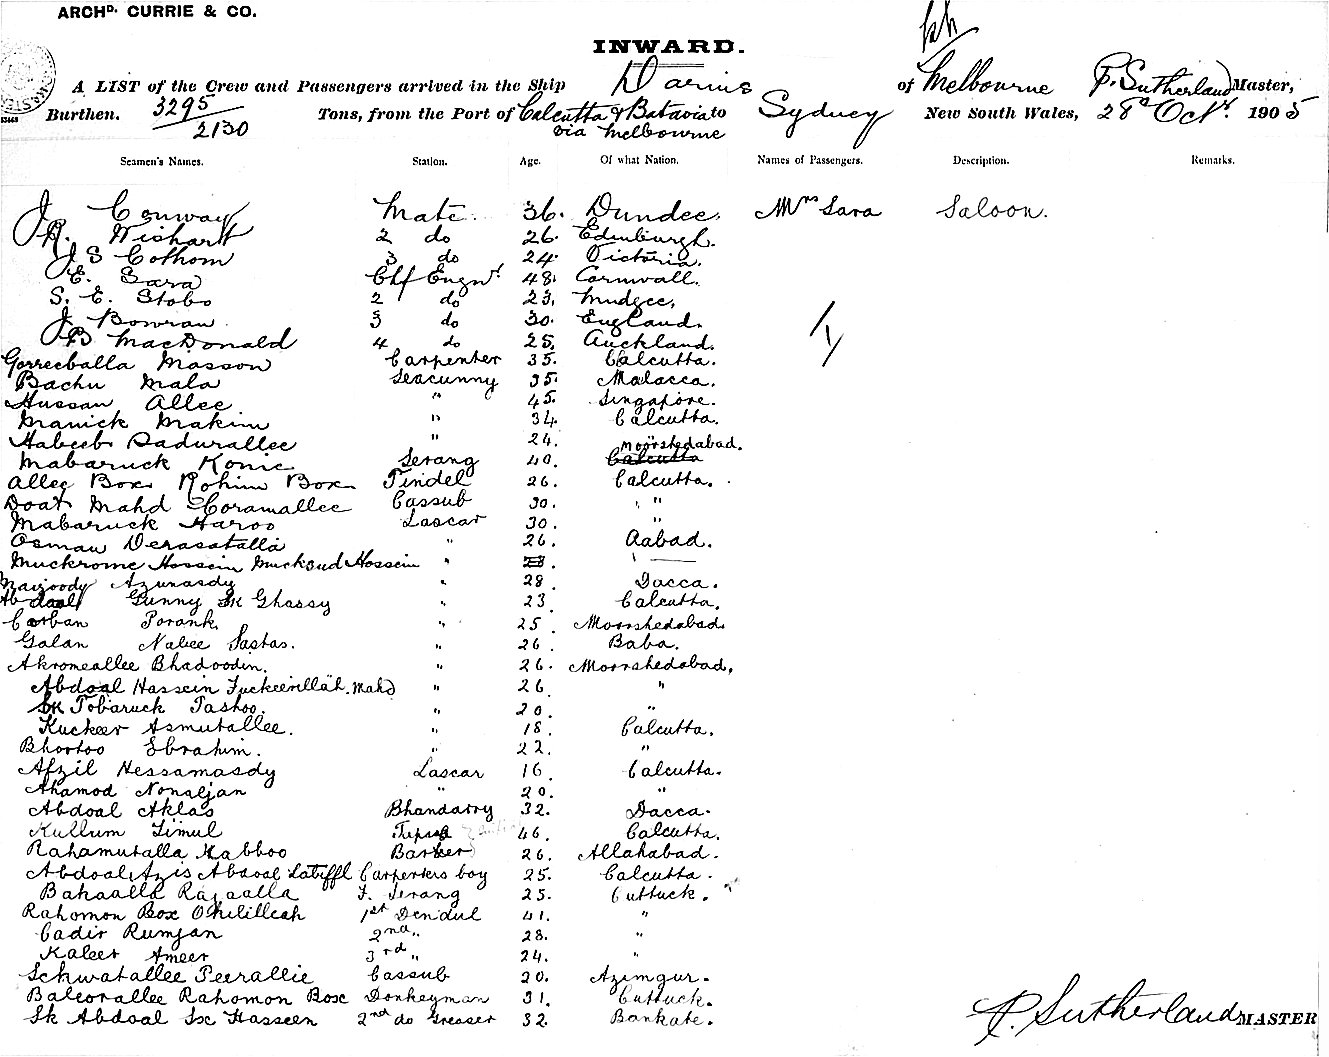 ARCHD. CURRIE & CO.
INWARD.
A LIST of the Crew and Passengers arrived in the Ship Darius of Melbourne P. Sutherland Master,
Burthen. 3295/2130 Tons, from the Port of Calcutta & Batavia via Melbourne to Sydney New South Wales, 28th Octr. 1905
Seamen's Names. Station. Age. Of what Nation. Names of Passengers. Description. Remarks.
J Conway Mate. 36. Dundee. Mrs Sara Saloon.
R. Wishart 2 do 26. Edinburgh.
J S Cothom 3 do 24. Victoria.
E. Sara Chf Engnr. 48. Cornwall.
S. E. Stobo 2 do 23. Mudgee.
J. Bowran. 3 do 30. England.
B MacDonald 4 do 25. Auckland.
Gorreeballa Masson Carpenter 35. Calcutta.
Bachu Mala Seacunny 35. Malacca.
Hussan Allee. " 45. Singapore.
Manick Makim " 34. Calcutta.
Habeeb Sadurallee " 24. Moorshedabad.
Mabaruck Konie Serang 40. Calcutta
Allee Box Rohim Box Tindel 26. Calcutta.
Doat Mahd Coramallee Cassub 30. "
Mabaruck Haroo Lascar 30. "
Osman Derasatalla " 26. Aabad.
Muckrome Hossein Mucksud Hossein "
Azunasdy " 28 Dacca.
Abdoal Gunny Sk Ghassy " 23 Calcutta.
Corban Porank. " 25. Moorshedabad.
Golan Nabee Sastas. " 26. Baba.
Akromeallee Bhadoodin. " 26. Moorshedabad,
Abdoal Hassein Fuckeerillah. Mahd " 26 "
Sk Tobaruck Tashoo. " 20. "
Kucheer Asmutallee. " 18. Calcutta.
Bhortoo Ebrahim. " 22. "
Afzil Hessamasdy Lascar 16 Calcutta.
Ahamod Nonaljan " 20. "
Abdoal Aklas Bhandarry 32. Dacca.
Kullum Limul 46. Calcutta.
Rahamutalla Habboo Barber 26. Allahabad.
Abdoal Azis Abdoal Latiffl Carpenters boy 25. Calcutta.
Bahaalla Rajaalla F. Serang 25. Cuttuck.
Rahomon Box Ohilillah 1st Dendul 41. "
Cadir Rumjan 2nd " 28. "
Kaleer Ameer 3rd " 24. "
Schwatallee Peerallie Cassub 20. Azimgur.
Baleorallee Rahomon Bose Donkeyman 31. Cuttuck.
Sk Abdoal Sk Hasseen 2nd do Greaser 32. Bankate.
P. Sutherland MASTER